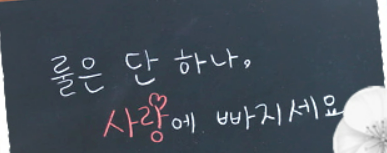 룰은 단 하나,
사랑에 빠지세요